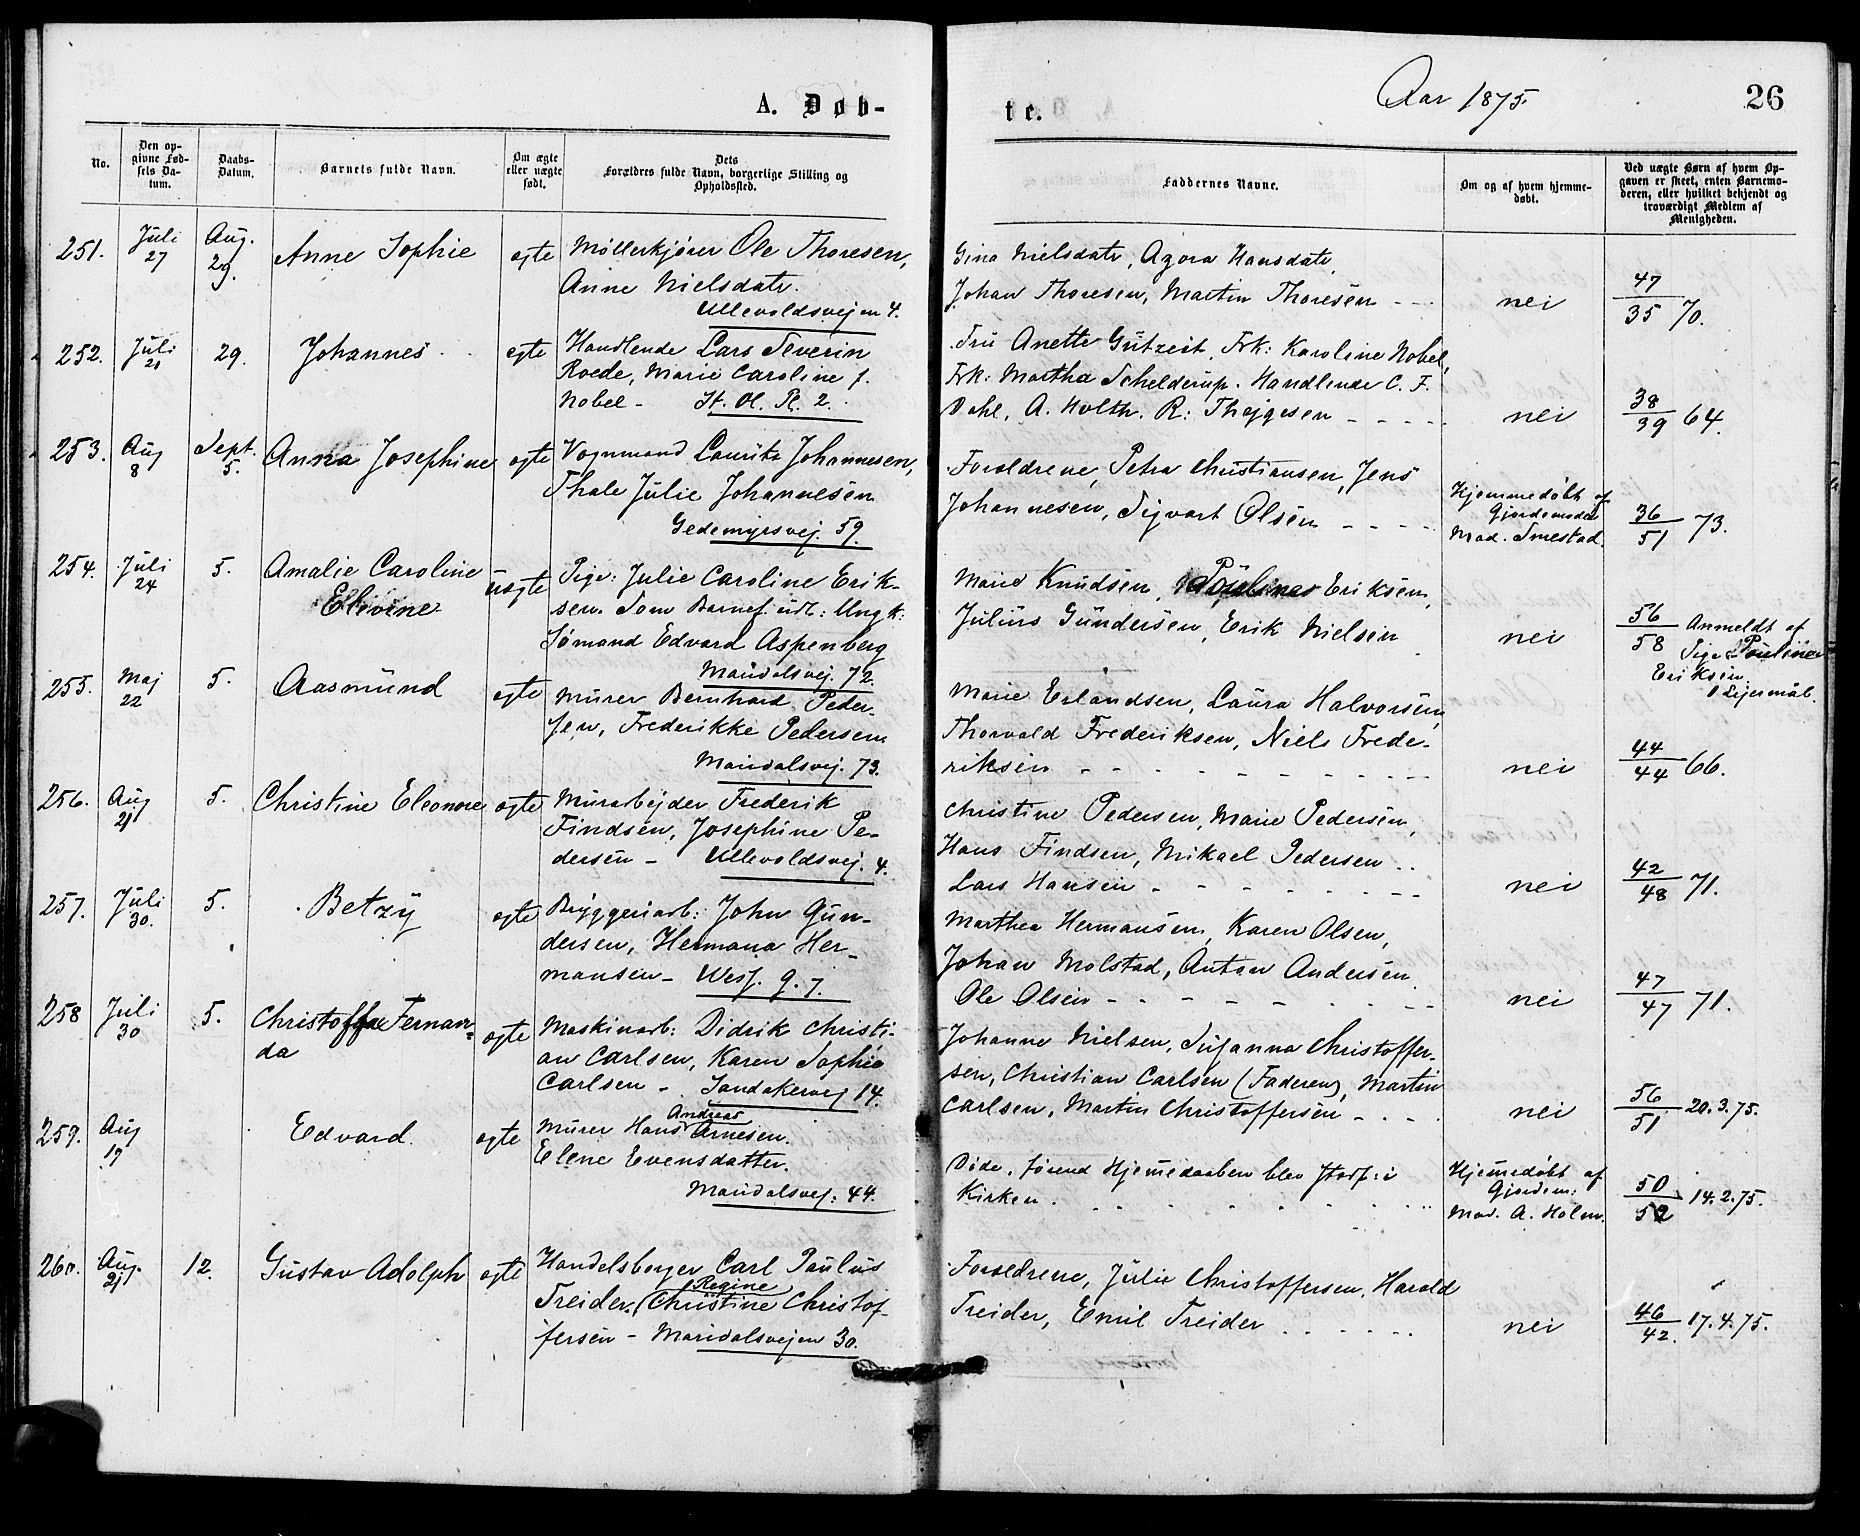 A. Døb-
No.
Den opgivne Fødsels Datum.
Daabs-Datum.
Barnets fulde Navn.
Om ægte eller uægte født.
Dets Forældres fulde Navn, borgerlige Stilling og Opholdssted.
251. Juli 27 Aug. 29. Anne Sophie egte Møllerkjører Ole Thoresen,
Anne Nielsdatr.
Ullevoldsvejen 4.
252. Juli 21 29. Johannes egte Handlende Lars Severin
Roede, Marie Caroline f.
Nobel - St. Ol. Pl. 2.
253. Aug 8 Sept. 5. Anna Josephine egte Vognmand Lauritz Johannesen,
Thale Julie Johannesen
Gedemyrsvej. 59.
254. Juli 24 5. Amalie Caroline uegte Pige: Julie Caroline Erik-
Elevine sen. Som Barnef. udl: Ungk:
Sømand Edvard Aspenberg
Maridalsvej. 72.
255. Maj 22 5. Aasmund egte Murer Bernhard Peder-
sen, Frederikke Pedersen
Maridalsvej. 73.
256. Aug 21 5. Christine Eleonore egte Murarbejder Frederik
Findsen, Josephine Pe-
dersen - Ullevoldsvej. 4.
257. Juli 30. 5. Betzy egte Bryggeriarb: John Gun-
dersen, Hermana Her-
mansen - Wesf. g. 7.
258 Juli 30 5. Fernan-
da egte Maskinarb: Didrik Christi-
an Carlsen, Karen Sophie
Carlsen - Sandakervej 14.
259. Aug 19 Edvard. egte Murer Hans Andreas Arnesen.
Elene Evensdatter.
Maridalsvej: 44.
260. Aug. 21 12. Gustav Adolph egte Handelsborger Carl Paulus
Treider, Regine Christine Christof-
fersen - Maridalsvejen 30.
te.
Aar 1875.
26
Faddernes Navne.
Om og af hvem hjemmedøbt.
Ved uægte Børn af hvem Opgaven er skeet, enten Barnemoderen, eller hvilket bekjendt og troværdigt Medlem af Menigheden.
Gina Nielsdatr, Agora Hansdatr,
Johan Thoresen, Martin Thoresen - - nei 47/35 70.
Fru Anette Gutzeit, Frk: Karoline Nobel,
Frk: Martha Schelderup. Handlende C. F.
Dahl, A. Holth. R: Thejgesen - - - - - nei 38/39 64.
Foreldrene, Petra Christiansen, Jens
Johannesen, Sigvart Olsen - - - - Hjemmedøbt af
Gjordemoder
Mad. Smestad. 36/51 73.
Marie Knudsen, Pouline Eriksen,
Julius Gundersen, Erik Nielsen nei 56/58 Anmeldt af
Pige Pouline
Eriksen.
1 Lejermål.
Marie Erlandsen, Laura Halvorsen,
Thorvald Frederiksen, Niels Frede-
riksen - - - - - - - - - nei 44/44 66.
Christine Pedersen, Marie Pedersen,
Hans Findsen, Mikael Pedersen ..
Lars Hansen - - - - - - - - nei 42/48 71.
Marthea Hermansen, Karen Olsen,
Johan Molstad, Anton Andersen
Ole Olsen - - - - - - - - - nei 47/47 71.
Johanne Nielsen, Susanna Christoffer-
sen, Christian Carlsen (Faderen), Martin
Carlsen, Martin Christoffersen - - - nei 56/51 20.3.75.
Døde, førend Hjemedaaben blev stadf: i
Kirken . . . . . . . . . . Hjemedøbt af
Gjordem:
Mad. A. Holm. 50/52 14.2.75.
Foreldrene, Julie Christoffersen, Harald
Treider, Emil Treider . . . . . . nei 46/42. 17.4.75.